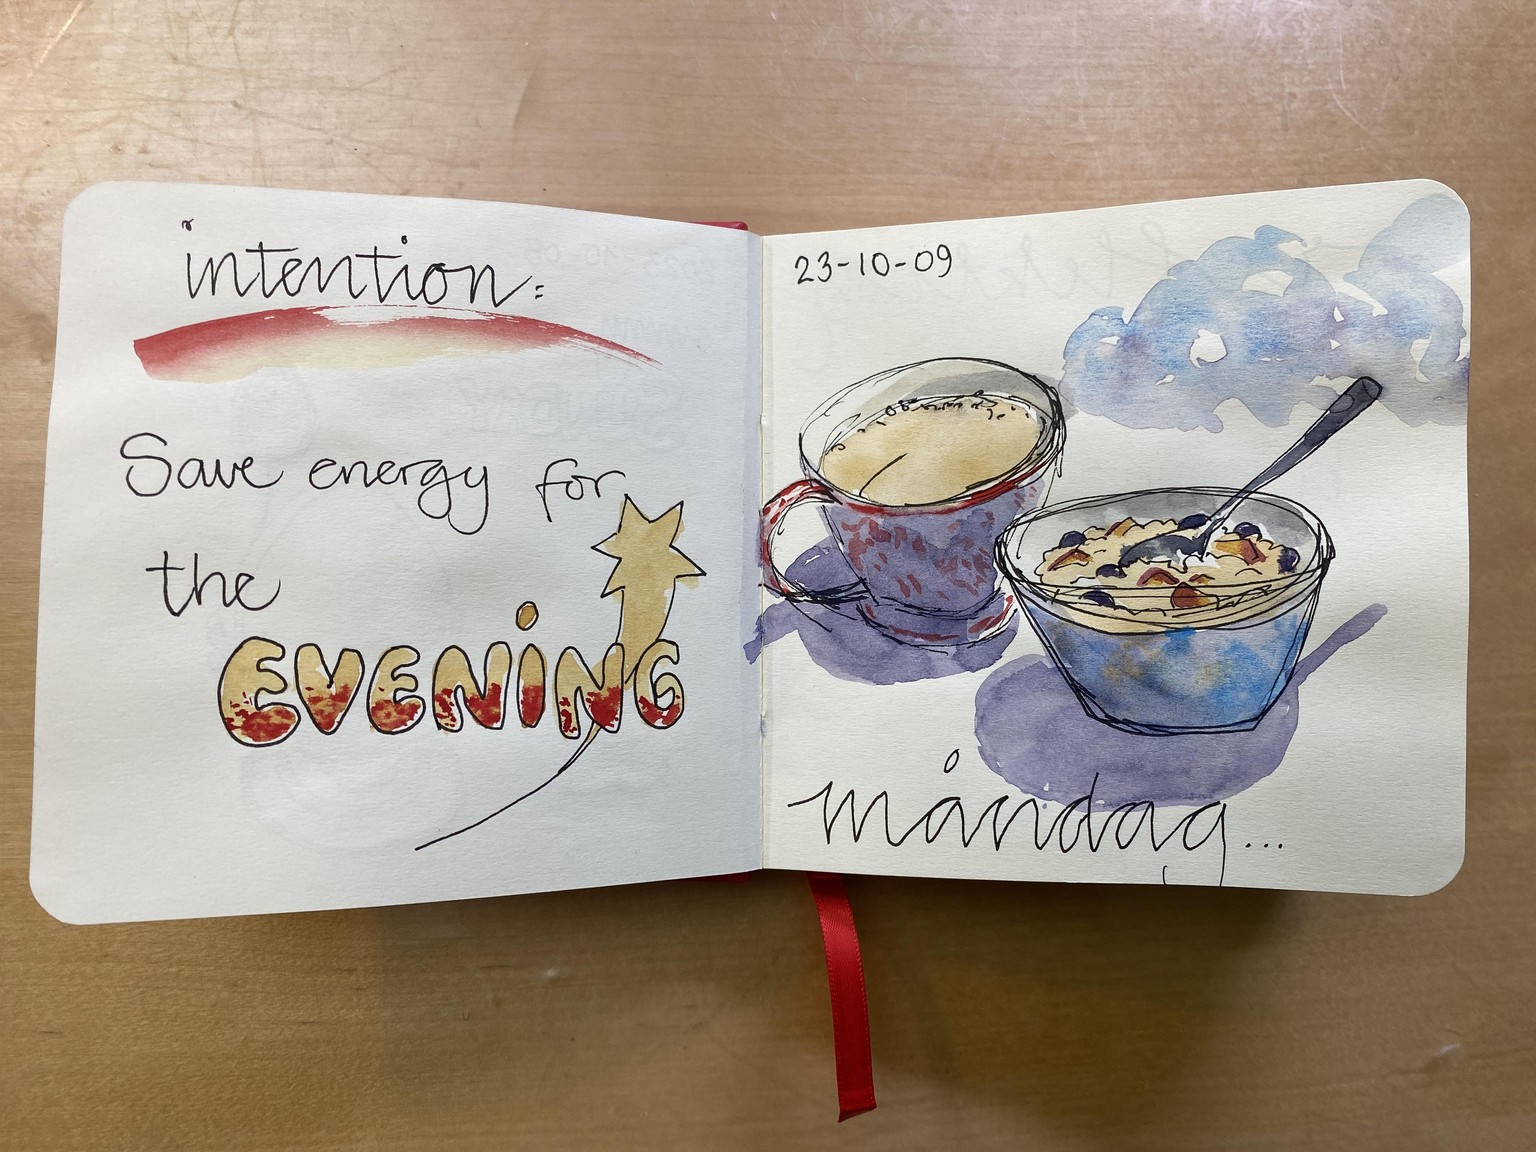 intention:
Save energy for
the
EVENING
23-10-09
måndag...